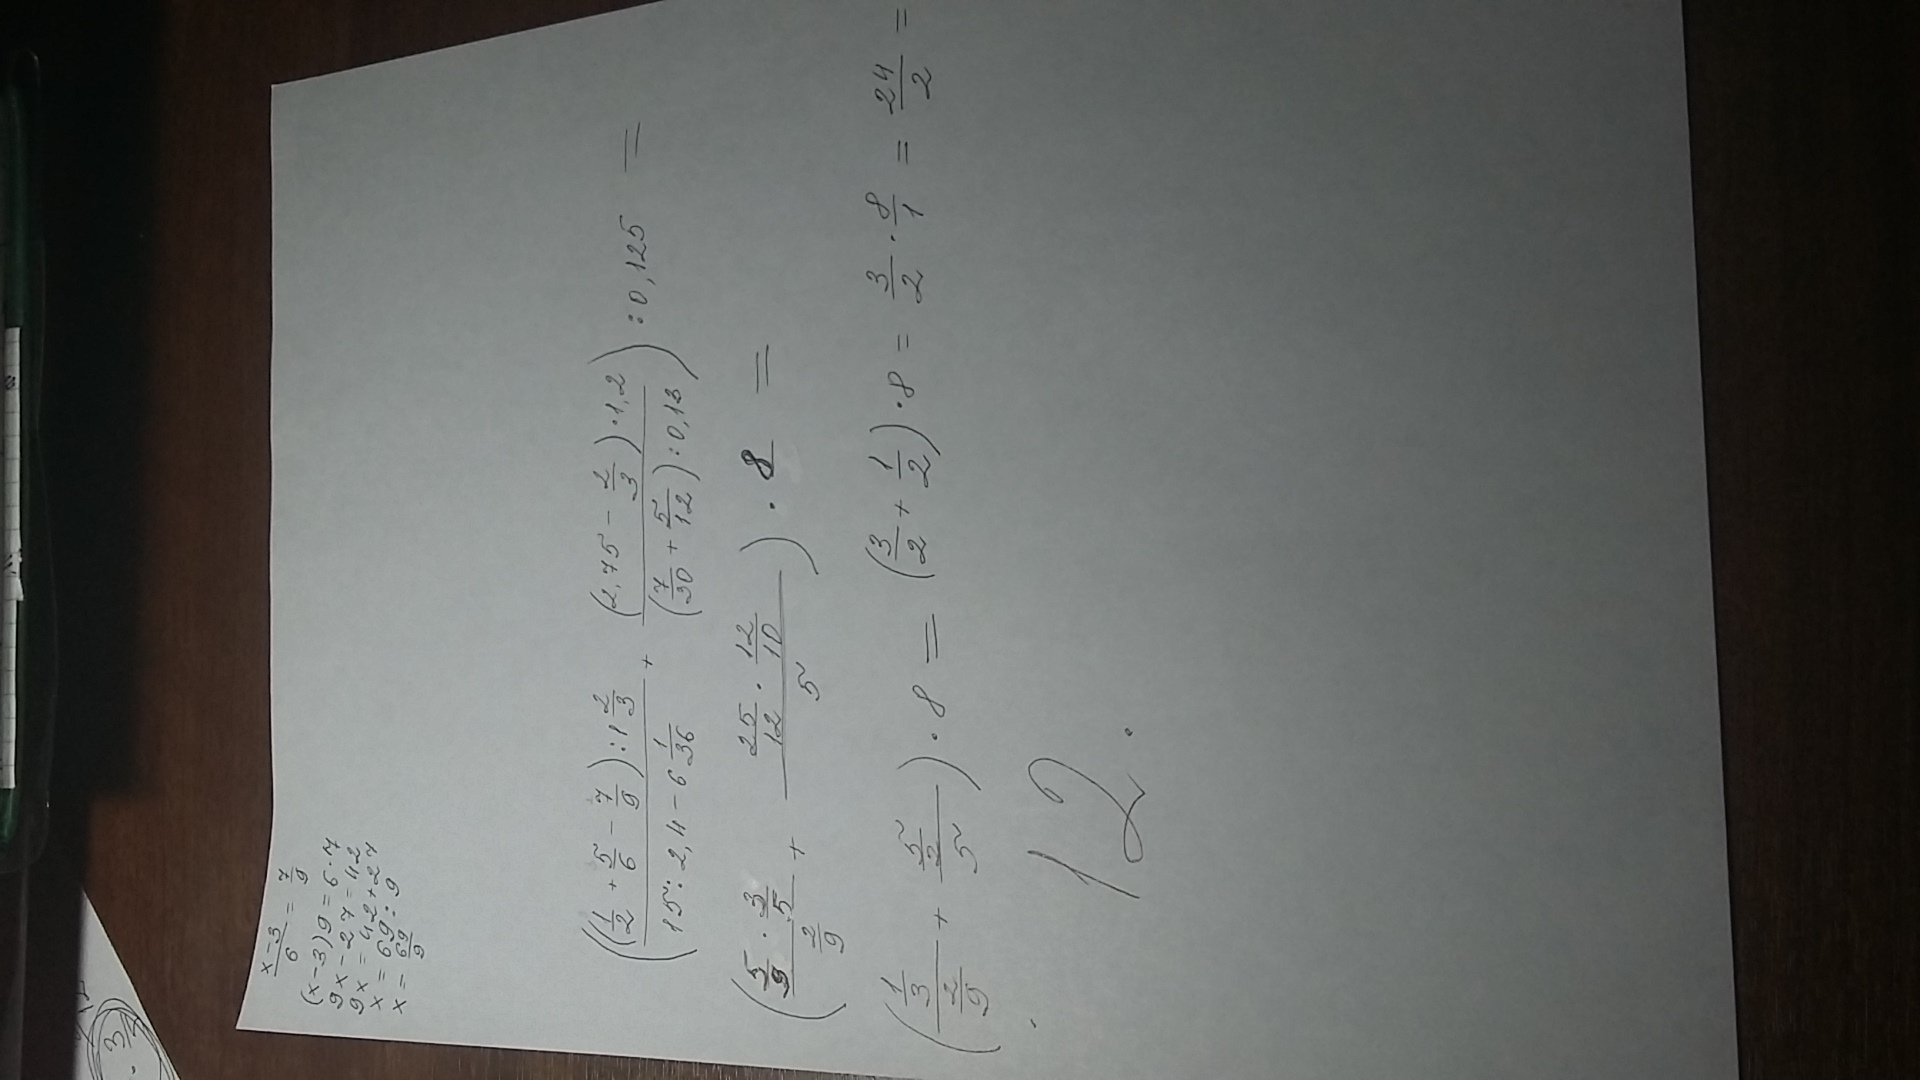 x-3/6 = 7/9
(x-3)9 = 6·7
9x-27 = 42
9x = 42+27
x = 69:9
x = 69/9
((1/2 + 5/6 - 7/9) : 1 2/3)/(15 : 2,4 - 6 1/36) + ((2,75 - 2/3) · 1,2)/((7/30 + 5/12) : 0,13)) : 0,125 =
((5/9 · 3/5)/(2/9) + (25/12 · 12/10)/5) · 8 =
((1/3)/(2/9) + (5/2)/5) · 8 = (3/2 + 1/2) · 8 = 3/2 · 8/1 = 24/2 =
12.